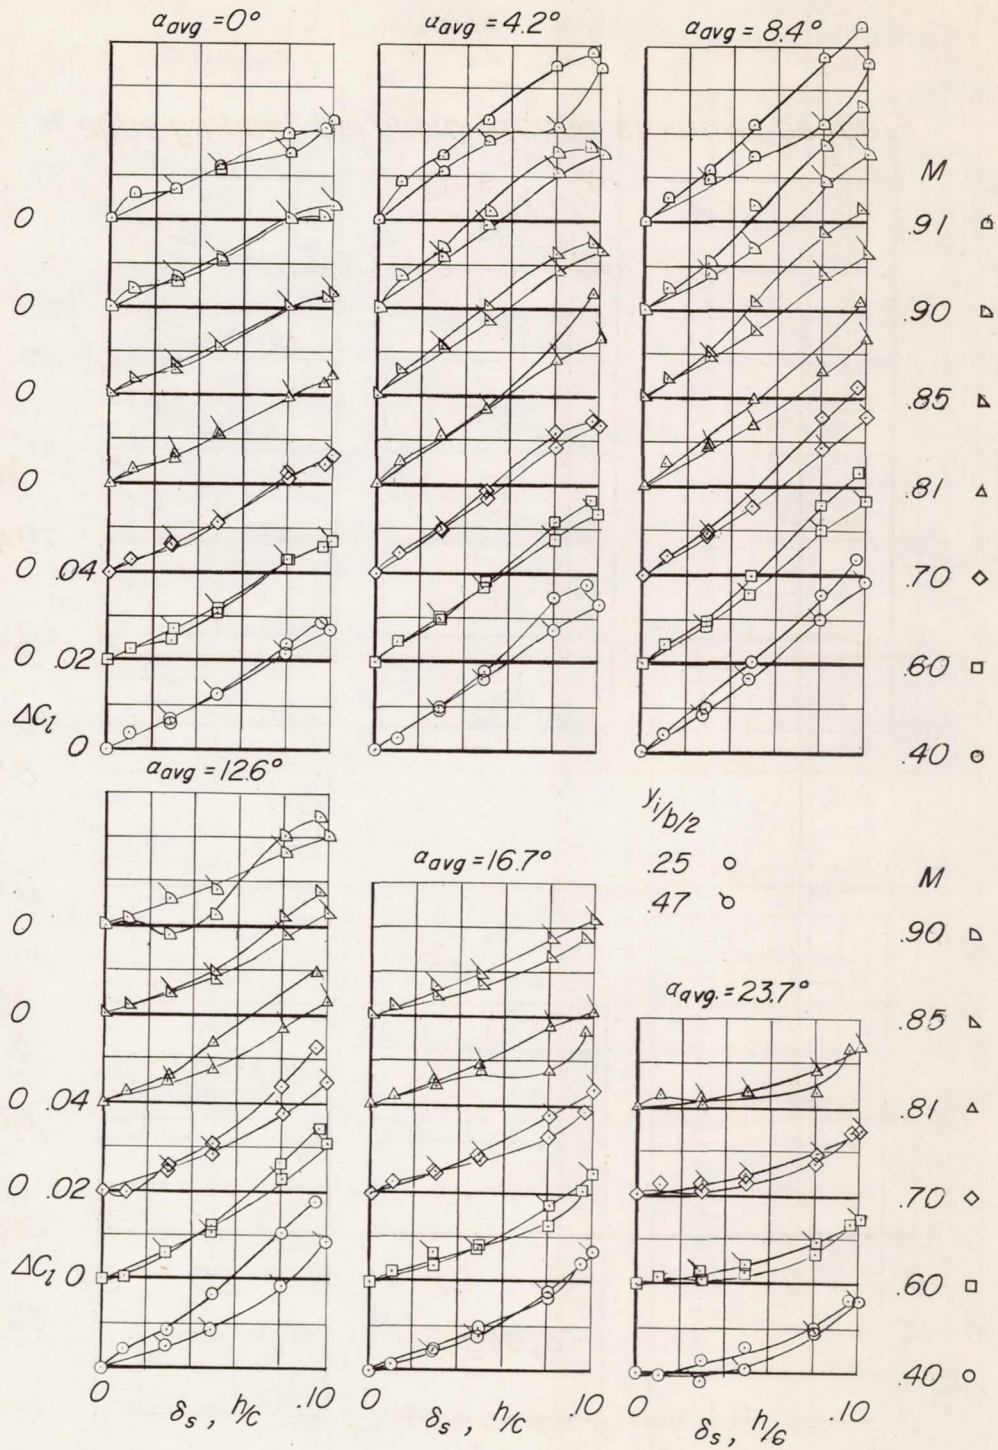 α avg = 0°
α avg = 4.2°
α avg = 8.4°
M
0
.91
0
.90
0
.85
0
.81
0 .04
.70
0 .02
.60
ΔC l
0
.40
α avg = 12.6°
y i / b/2
.25
.47
α avg = 16.7°
M
0
.90
α avg. = 23.7°
0
.85
0 .04
.81
0 .02
.70
ΔC l 0
.60
.40
0 .10
0 .10
0 .10
δ s , h/c
δ s , h/c
δ s , h/c